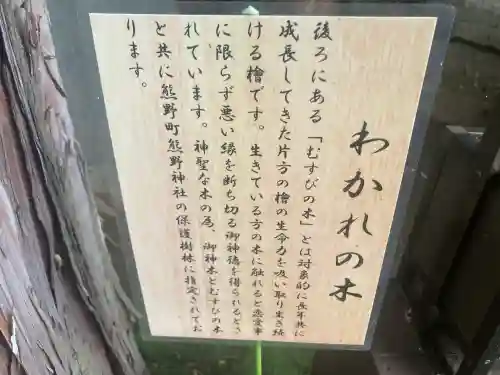 わかれの木
後ろにある「むすびの木」とは対象的に長年共に
成長してきた片方の檜の生命力を吸い取り生き続
ける檜です。生きている方の木に触れると恋愛事
に限らず悪い縁を断ち切る御神徳を得られるとさ
れています。神聖な木の為、御神木とむすびの木
と共に熊野町熊野神社の保護樹林に指定されてお
ります。